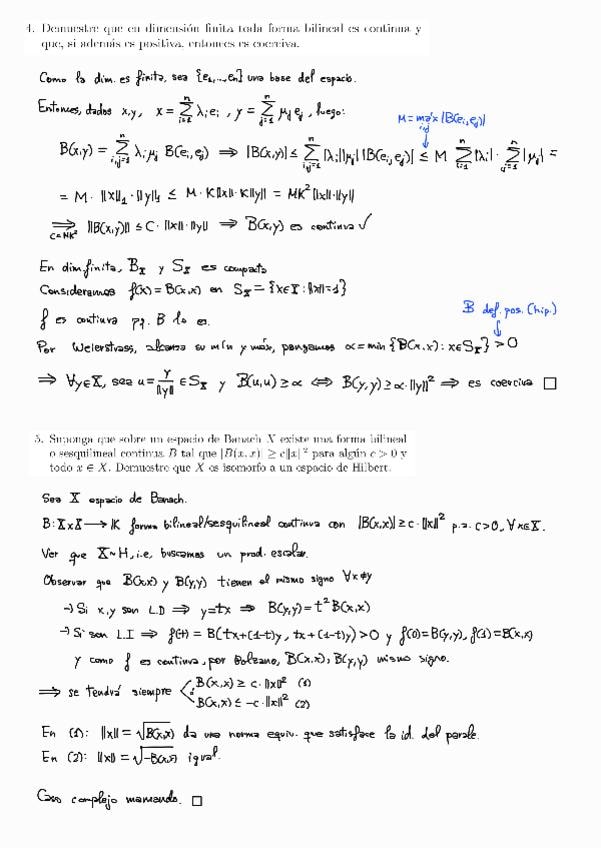 4. Demuestre que en dimensión finita toda forma bilineal es continua y
que, si además es positiva, entonces es coerciva.
Como la dim. es finita, sea {e₁,...,eₙ} una base del espacio.
Entonces, dados x,y, x = ∑ᵢ₌₁ⁿ λᵢeᵢ, y = ∑ⱼ₌₁ⁿ μⱼeⱼ, luego:
M = máx_{i,j} |B(eᵢ,eⱼ)|
B(x,y) = ∑_{i,j=1}ⁿ λᵢμⱼ B(eᵢ,eⱼ) ⇒ |B(x,y)| ≤ ∑_{i,j=1}ⁿ |λᵢ||μⱼ||B(eᵢ,eⱼ)| ≤ M ∑ᵢ₌₁ⁿ |λᵢ| · ∑ⱼ₌₁ⁿ |μⱼ| =
= M · ||x||₁ · ||y||₁ ≤ M · K||x|| · K||y|| = MK² ||x||·||y||
⇒_{C=MK²} ||B(x,y)|| ≤ C · ||x|| · ||y|| ⇒ B(x,y) es continua ✓
En dim finita, B_X y S_X es compacto
Consideramos f(x) = B(x,x) en S_X = {x∈X : ||x||=1}
B def. pos. (hip.)
f es continua pq. B lo es.
Por Weierstrass, alcanza su mín y máx, pongamos α = min {B(x,x) : x∈S_X} > 0
⇒ ∀y∈X, sea u = y/||y|| ∈ S_X y B(u,u) ≥ α ⇔ B(y,y) ≥ α·||y||² ⇒ es coerciva □
5. Suponga que sobre un espacio de Banach X existe una forma bilineal
o sesquilineal continua B tal que |B(x,x)| ≥ c||x||² para algún c > 0 y
todo x ∈ X. Demuestre que X es isomorfo a un espacio de Hilbert.
Sea X espacio de Banach.
B: X×X → K forma bilineal/sesquilineal continua con |B(x,x)| ≥ c·||x||² p.a. c>0, ∀x∈X.
Ver que X∼H, i.e, buscamos un prod. escalar.
Observar que B(x,x) y B(y,y) tienen el mismo signo ∀x≠y
→ Si x,y son L.D ⇒ y=tx ⇒ B(y,y) = t² B(x,x)
→ Si son L.I ⇒ f(t) = B(tx+(1-t)y, tx+(1-t)y) > 0 y f(0)=B(y,y), f(1)=B(x,x)
y como f es continua, por Bolzano, B(x,x), B(y,y) mismo signo.
⇒ se tendrá siempre B(x,x) ≥ c·||x||² (1)
B(x,x) ≤ -c·||x||² (2)
En (1): ||x|| = √B(x,x) da una norma equiv. que satisface la id. del parale.
En (2): ||x|| = √-B(x,x) igual.
Caso complejo mamando. □